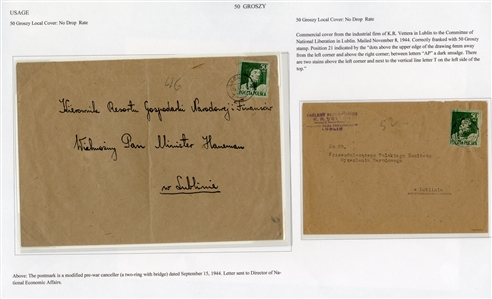 50 GROSZY
USAGE
50 Groszy Local Cover: No Drop Rate
50 Groszy Local Cover: No Drop Rate
Commercial cover from the industrial firm of K.R. Vettera in Lublin to the Committee of
National Liberation in Lublin. Mailed November 8, 1944. Correctly franked with 50 Groszy
stamp. Position 21 indicated by the "dots above the upper edge of the drawing 6mm away
from the left corner and above the right corner; between letters "AP" a dark smudge. There
are two stains above the left corner and next to the vertical line letter T on the left side of
the top."
46
POCZTA POLSKA
Kierownik Resortu Gospodarki Narodowej i Finansów
Wielmożny Pan Minister Haneman
w Lublinie
52
Do
Przewodniczącego Polskiego Komitetu
Wyzwolenia Narodowego
w Lublinie
Above: The postmark is a modified pre-war canceller (a two-ring with bridge) dated September 15, 1944. Letter sent to Director of Na-
tional Economic Affairs.